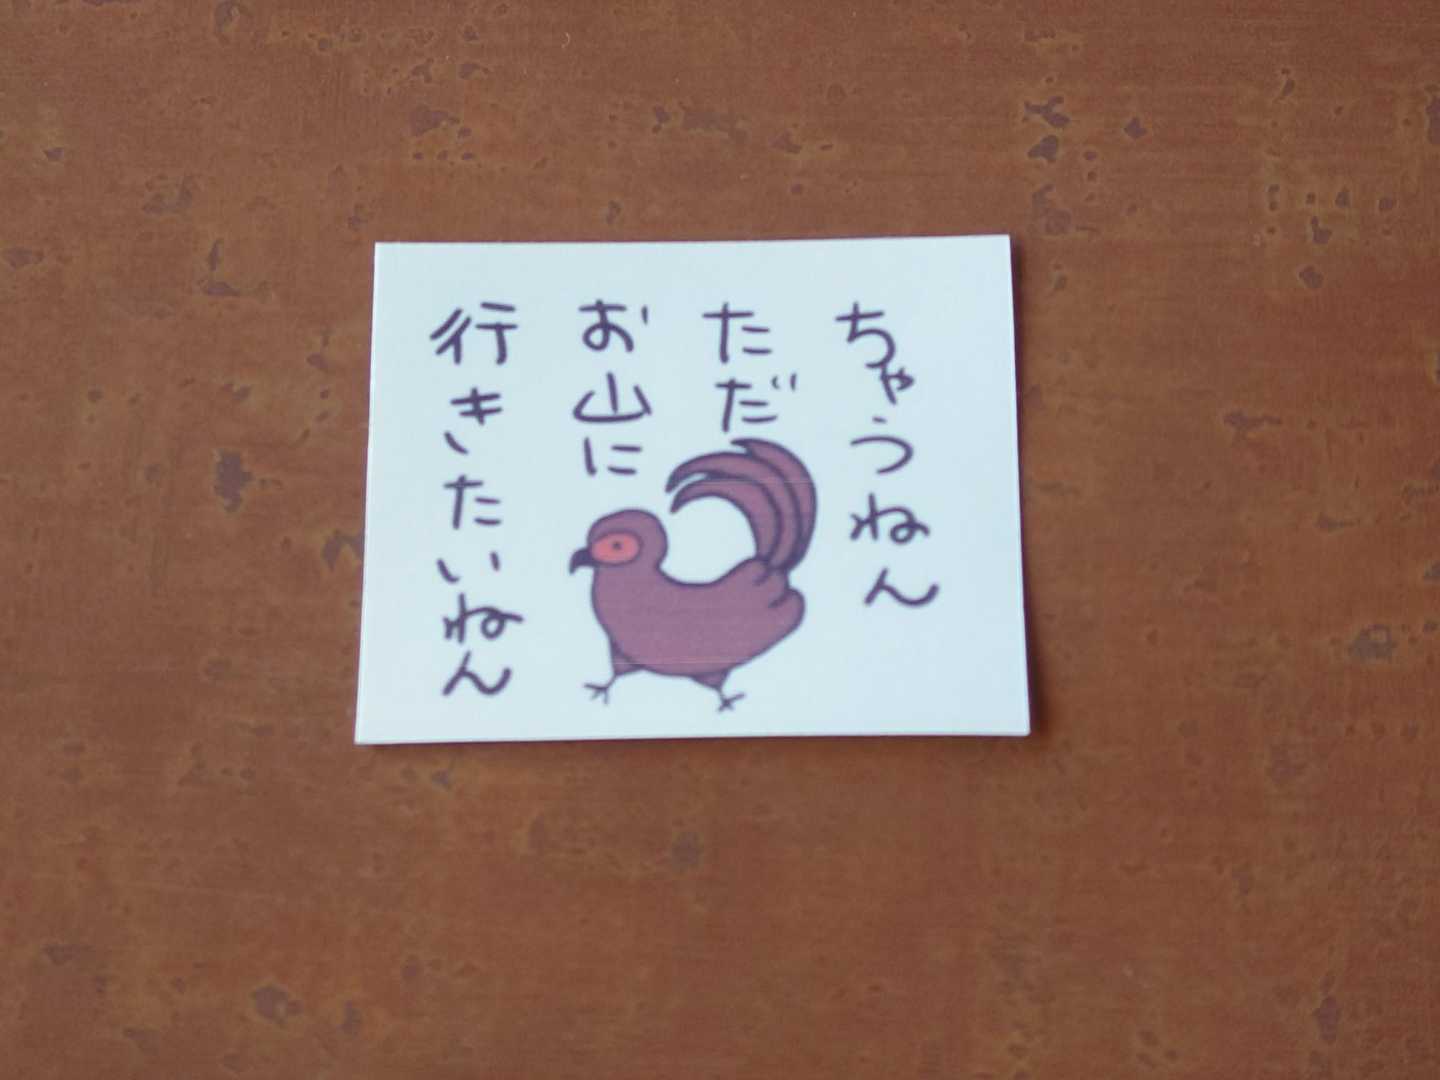 ちゃうねん
ただ
お山に
行きたいねん